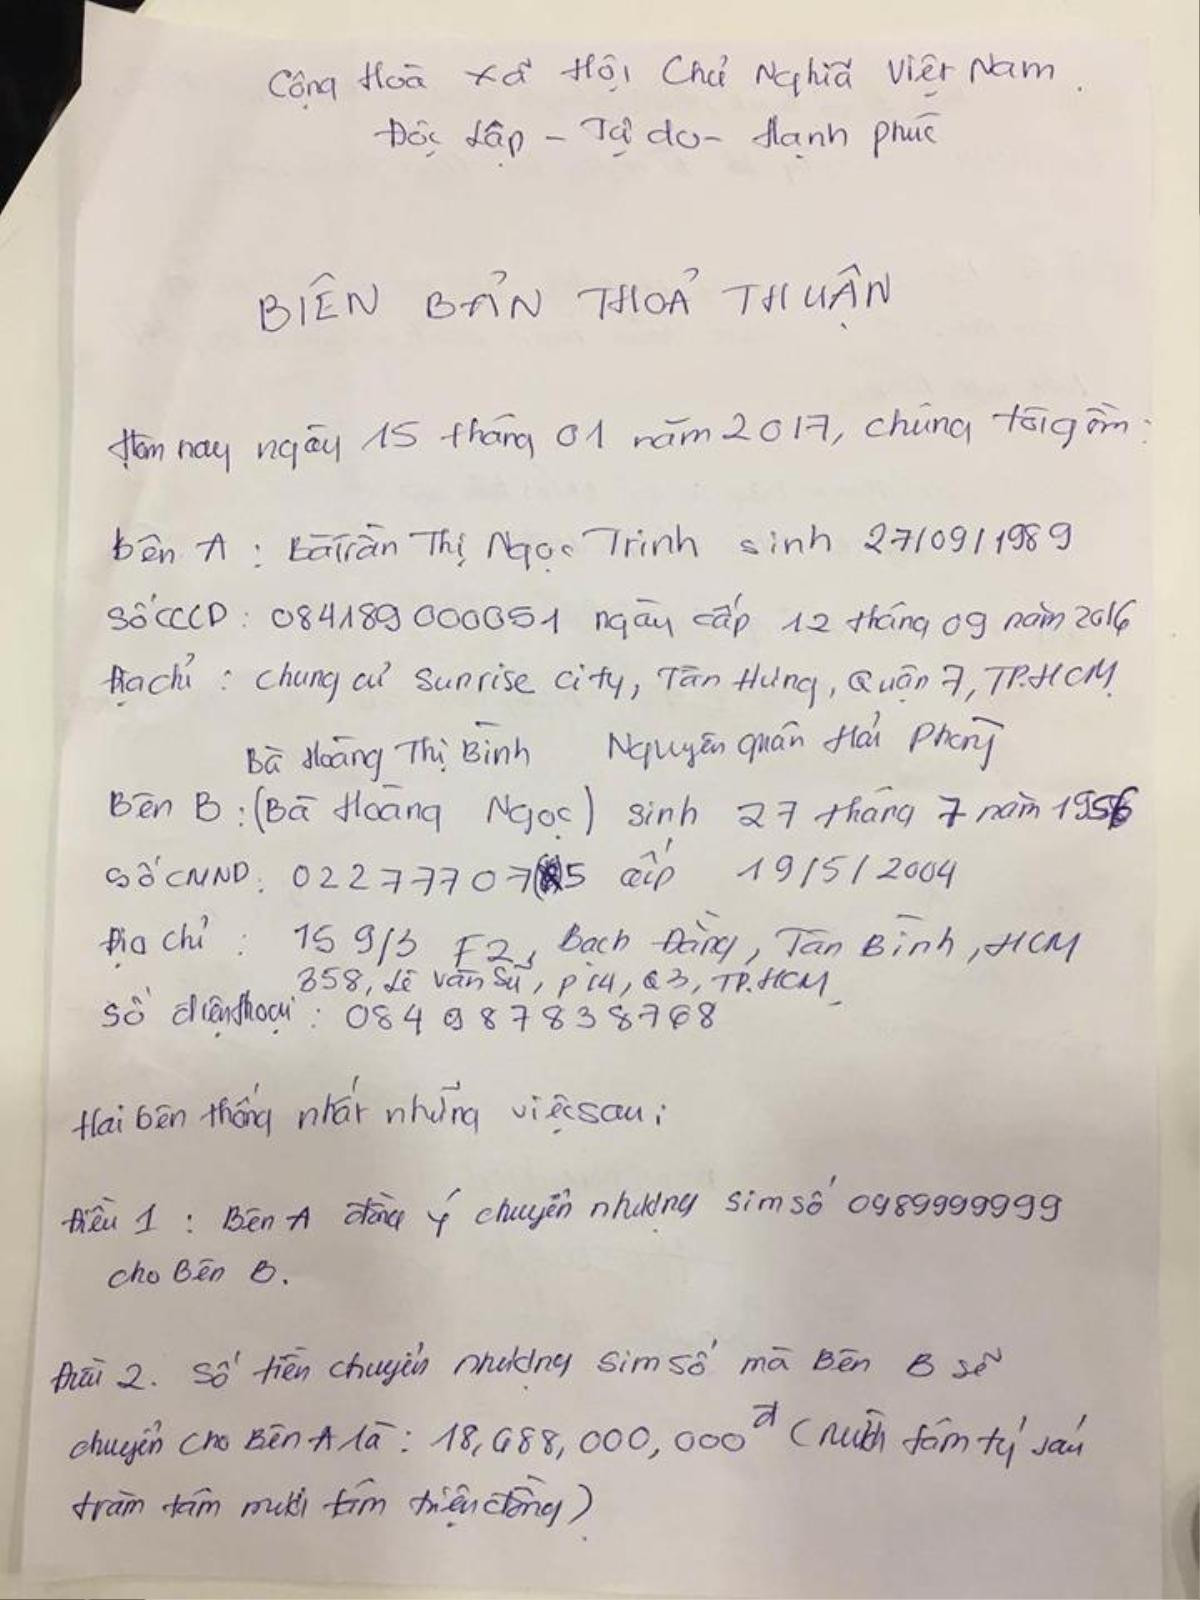 Cộng Hoà Xã Hội Chủ Nghĩa Việt Nam.
Độc Lập - Tự do - Hạnh phúc
BIÊN BẢN THOẢ THUẬN
Hôm nay ngày 15 tháng 01 năm 2017, chúng tôi gồm:
Bên A : Bà Trần Thị Ngọc Trinh sinh 27/09/1989
Số CCCD: 084189000051 ngày cấp 12 tháng 09 năm 2016
Địa chỉ : chung cư Sunrise city, Tân Hưng, Quận 7, TP.HCM
Bà Hoàng Thị Bình Nguyên quán Hải Phòng
Bên B : (Bà Hoàng Ngọc) sinh 27 tháng 7 năm 1956
Số CMND: cấp 19/5/2004
Địa chỉ : 159/3 F2, Bạch Đằng, Tân Bình, HCM
358, Lê Văn Sỹ, P14, Q3, TP.HCM
Số điện thoại : 084987838768
Hai bên thống nhất những việc sau:
Điều 1 : Bên A đồng ý chuyển nhượng sim số 0989999999
cho Bên B.
Điều 2. Số tiền chuyển nhượng sim số mà Bên B sẽ
chuyển cho Bên A là : 18,688,000,000đ (mười tám tỷ sáu
trăm tám mươi tám triệu đồng)